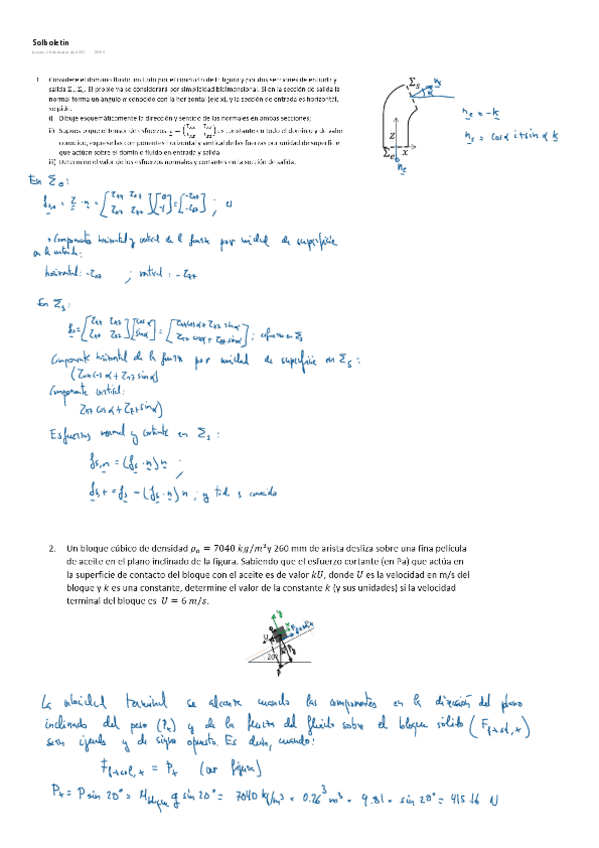 Sol boletin
1. Considere el dominio fluido limitado por el conducto de la figura y por dos secciones de entrada y
salida Σₑ, Σₛ. El problema se considerará por simplicidad bidimensional. Si en la sección de salida la
normal forma un ángulo α conocido con la horizontal (eje x), y la sección de entrada es horizontal,
se pide:
i) Dibuje esquemáticamente la dirección y sentido de las normales en ambas secciones;
ii) Supuesto que el tensor de esfuerzos es constante en todo el dominio y de valor
conocido, exprese las componentes horizontal y vertical de las fuerzas por unidad de superficie
que actúan sobre el dominio fluido en entrada y salida
iii) Determine el valor de los esfuerzos normales y cortantes en la sección de salida.
Σₛ nₛ
α
z
Σₑ x
nₑ
nₑ = -k
nₛ = cosα i + sinα k
En Σₑ:
Componentes horizontal y vertical de la fuerza por unidad de superficie
en la entrada:
horizontal: -τxz ; vertical: -τzz
En Σₛ:
fₛ = [τxx τxz; τxz τzz][cosα; sinα] = [τxx cosα + τxz sinα; τxz cosα + τzz sinα]; en Σₛ
Componente horizontal de la fuerza por unidad de superficie en Σₛ:
(τxx cosα + τxz sinα)
Componente vertical:
τxz cosα + τzz sinα)
Esfuerzos normal y cortante en Σₛ:
fₛ,n = (fₛ · n) n ;
fₛ,t = fₛ - (fₛ · n) n ; y todo es conocido
2. Un bloque cúbico de densidad ρₐ = 7040 kg/m³ y 260 mm de arista desliza sobre una fina película
de aceite en el plano inclinado de la figura. Sabiendo que el esfuerzo cortante (en Pa) que actúa en
la superficie de contacto del bloque con el aceite es de valor kU, donde U es la velocidad en m/s del
bloque y k es una constante, determine el valor de la constante k (y sus unidades) si la velocidad
terminal del bloque es U = 6 m/s.
U
20°
P
La velocidad terminal se alcanza cuando las componentes en la dirección del plano
inclinado del peso (Pₓ) y de la fuerza del fluido sobre el bloque sólido (F f→sol, x)
sean iguales y de signo opuesto. Es decir, cuando:
F f→sol, x = Pₓ (ver figura)
Pₓ = P sin 20° = M bloque g sin 20° = 7040 kg/m³ · 0.26³ m³ · 9.81 · sin 20° = 415.16 N